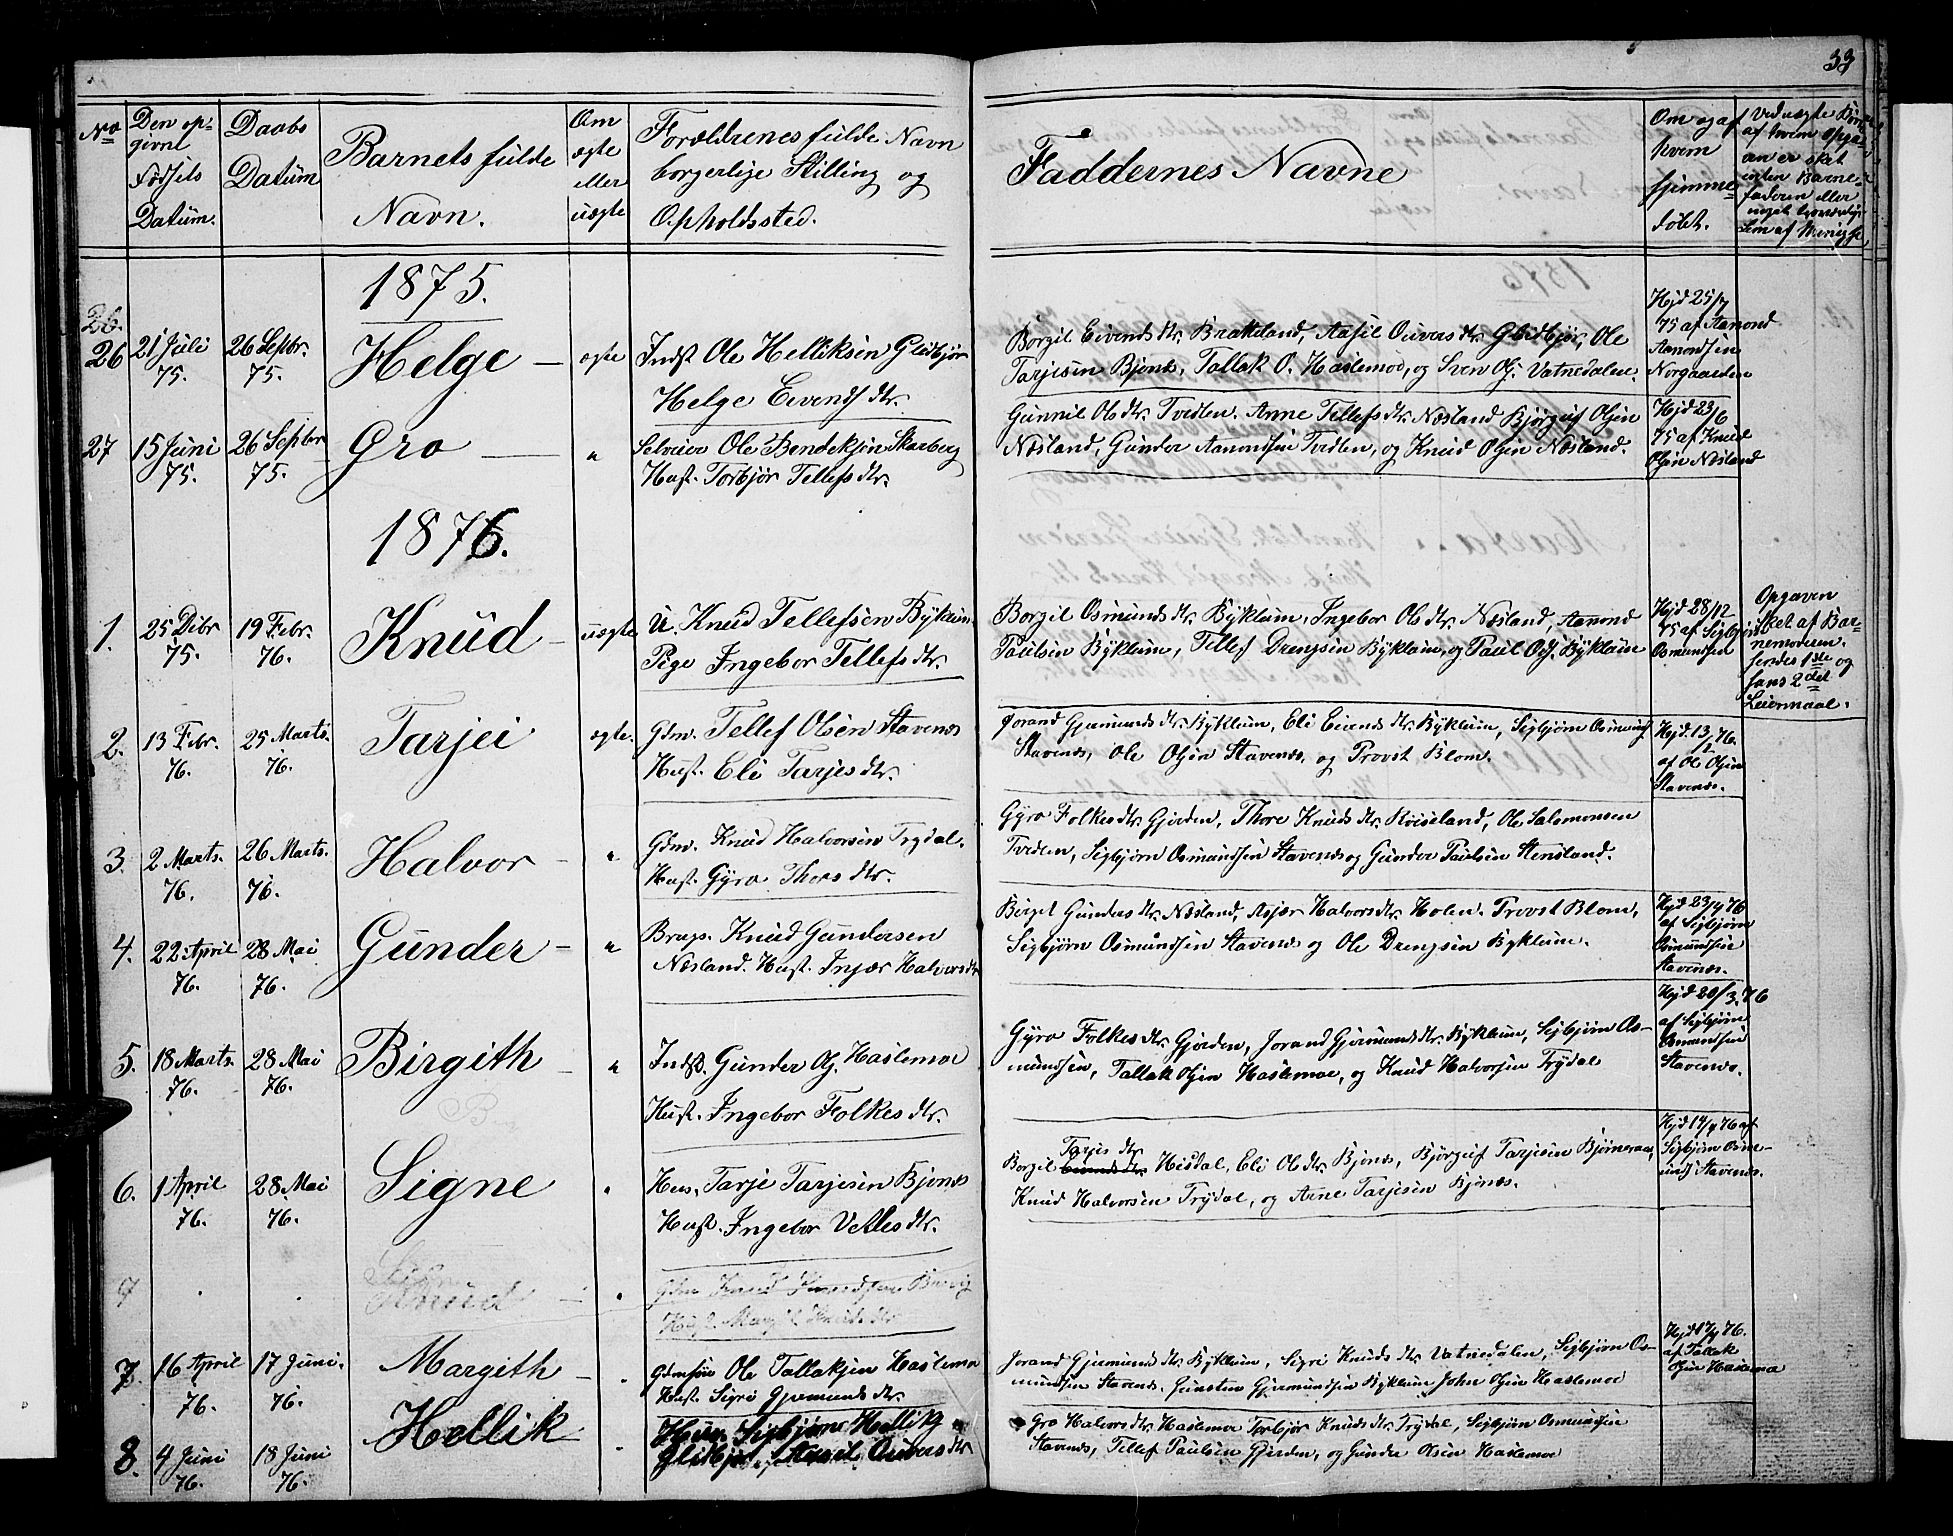 33
No
Den op-
givne
Fødsels
Datum.
Daabs
Datum
Barnets fulde
Navn.
Om
ægte
eller
uægte
Forældrenes fulde Navn
borgerlige Stilling og
Opholdssted.
Faddernes Navne
Om og af
hvem
hjemme
døbt.
Ved uægte Børn
af hvem Opga-
ven er sket
enten Barne-
faderen eller
1875.
26.
26
21 Juli
75.
26 Septbr.
75.
Helge
ægte
Indst Ole Helliksen Glidbjør
Helge Eivends dtr.
Borgil Eivends dtr. Bratteland, Aasil Ouvers dtr. Glidbjør, Ole
Tarjesen Bjønes, Tallak O. Haslemoe, og Sven Ols. Vatnedalen.
Hjd 25/7
75 af Aamond
Aamondsen
Norgaarden
27
15 Juni
75.
26 Septbr
75.
Gro
"
Selveier Ole Bendiksen Skarberg
Hust. Torbjør Tellefs dtr.
Gunnil Ols dtr. Tveden. Anne Tellefs dtr. Næsland Bjørguf Olsen
Næsland, Gunder Aamondsen Tvedten, og Knud Olsen Næsland.
Hjd 23/6
75 af Knud
Olsen Næsland
1876.
1.
25 Dcbr
75.
19 Febr.
76.
Knud
uægte
U. Knud Tellefsen Byklum
Pige Ingebor Tellefs dtr.
Borgil Osmunds dtr. Byklum, Ingebor Ols dtr. Næsland, Aamond
Paulsen Byklum, Tellef Drengsen Byklum, og Paul Ols. Byklum
Hjd 28/12
75 af Sigbjørn
Osmundsen
Opgaven
sket af Bar-
nemoderen.
hendes 1ste og
hans 2det
Leiermaal.
2.
13 Febr.
76.
25 Marts.
76.
Tarjei
ægte.
Gdm. Tellef Olsen Stavenes
Hust. Eli Tarjes dtr.
Jorand Gjermunds dtr. Byklum, Eli Eivends dtr. Byklum, Sigbjørn Osmunds
Stavenes, Ole Olsen Stavenes, og Provst Blom.
Hjd. 13/2 76.
af Ole Olsen
Stavenes.
3.
2 Marts.
76.
26 Marts.
76.
Halvor
"
Gdm. Knud Halvorsen Trydal.
Hust. Gyro Thors dtr.
Gyro Folkes dtr. Gjerden, Thore Knuds dtr. Røiseland, Ole Salomonsen
Tvedten, Sigbjørn Osmundsen Stavenes og Gunder Paulsen Stensland.
4.
22 April
76.
28 Mai
76.
Gunder
"
Brugs. Knud Gundersen
Næsland. Hust. Injær Halvors dtr
Birget Gunders dtr. Næsland, Asjær Halvors dtr. Holen. Provst Blom,
Sigbjørn Osmundsen Stavenes og Ole Drengsen Byklum.
Hjd 23/4 76
af Sigbjørn
Osmundsen
Stavenes.
5.
18 Marts.
76.
28 Mai
76.
Birgith
"
Indst. Gunder Ols. Haslemoe
Hust. Ingebor Folkes dtr.
Gyro Folkes dtr. Gjerden, Jorand Gjermunds dtr. Byklum, Sigbjørn Os-
mundsen, Tallak Olsen Haslemoe, og Knud Halvorsen Trydal
Hjd 20/3. 76
af Sigbjørn
Osmundsen
Stavenes.
6.
1 April
76.
28 Mai
76.
Signe
"
Hus. Tarje Tarjesen Bjønes
Hust. Ingebor Vetles dtr.
Tarjes dtr.
Borgil Hisdal, Eli Ols dtr. Bjønes, Bjørguf Tarjesen Bjørneraa,
Knud Halvorsen Trydal, og Arne Tarjesen Bjønes.
Hjd 14/4 76 af
Sigbjørn Osm-
unds Stavenes.
7
Knud
Gdm Knud Knudsen
Hust. Margit Knuds dtr
7.
16 April
76.
17 Juni.
76.
Margith
Gdmsøn Ole Tallaksen Haslemo
Hust. Sigri Gjermunds dtr.
Jorand Gjermunds dtr. Byklum, Sigri Knuds dtr. Vatnedalen, Sigbjørn Os-
mundsen Stavenes. Gunsten Gjermundsen Byklum John Olsen Haslemoe
Hjd 17/4 76.
af Tallak
Olsen Haslemo
8.
4 Juni
76.
18 Juni
76.
Hellik
Hus. Sigbjørn Hellik
Glidbjør, Aasil Ouvers dtr
Gro Halvors dtr. Haslemoe Torbjør Knuds dtr. Trydal, Sigbjørn Osmundsen
Stavenes, Tellef Paulsen Gjerden, og Gunder Olsen Haslemoe